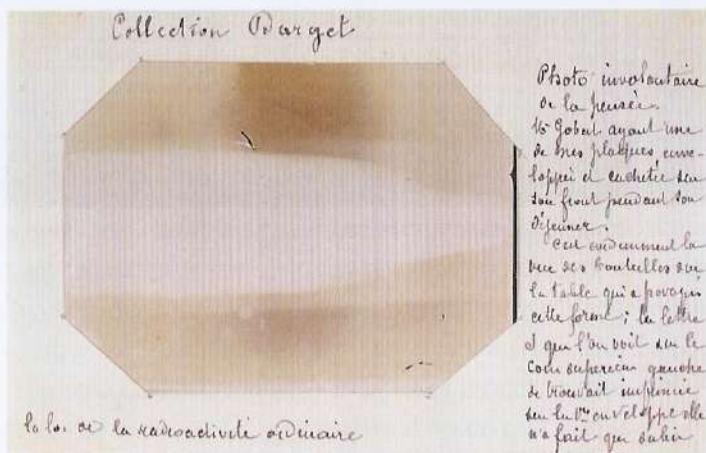 Collection Darget
Photo involontaire
de la pensée.
Mr Gobert ayant une
de mes plaques, enve-
loppée et cachetée sur
son front pendant son
déjeuner.
C'est évidemment la
vue des bouteilles sur
la table qui a provoqué
cette forme ; la lettre
J que l'on voit sur le
coin supérieur gauche
se trouvait imprimée
sur la 1ère enveloppe elle
n'a fait que subir
la loi de la radioactivité ordinaire